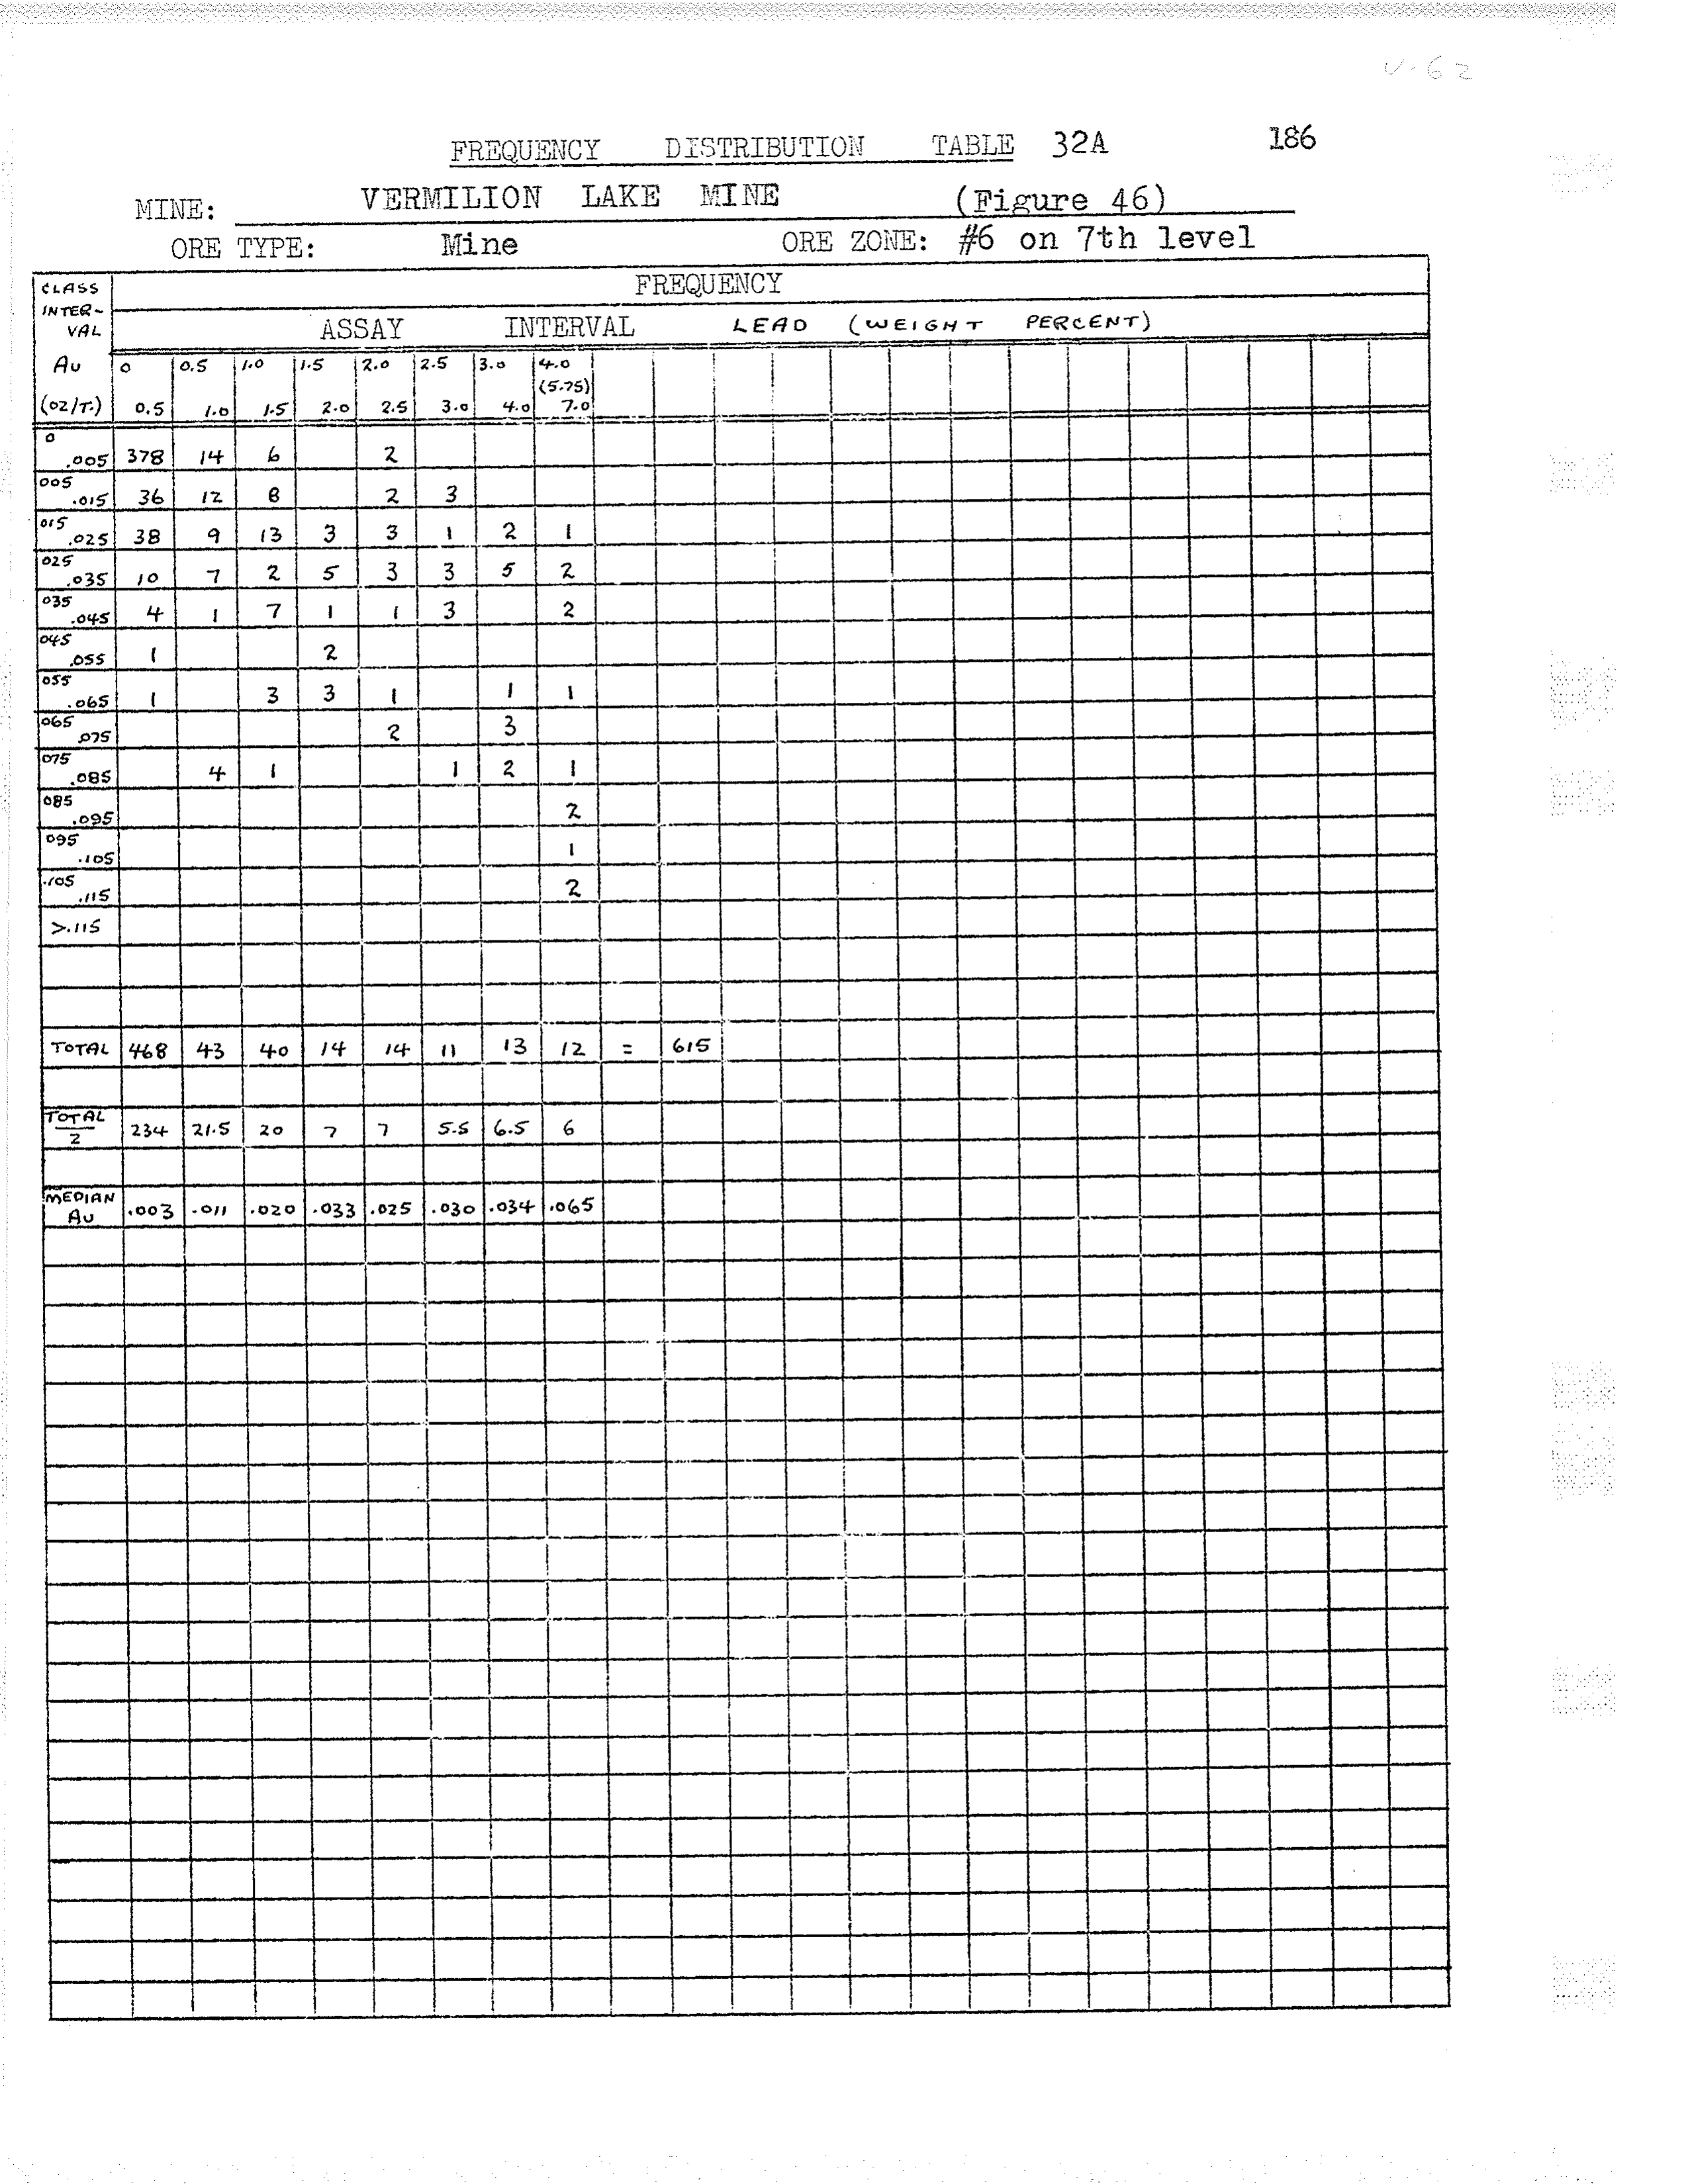 V-62
FREQUENCY DISTRIBUTION TABLE 32A 186
MINE: VERMILION LAKE MINE (Figure 46)
ORE TYPE: Mine ORE ZONE: #6 on 7th level
CLASS INTER-VAL FREQUENCY
ASSAY INTERVAL LEAD (WEIGHT PERCENT)
Au 0 0.5 1.0 1.5 2.0 2.5 3.0 4.0
(5.75)
(oz/T.) 0.5 1.0 1.5 2.0 2.5 3.0 4.0 7.0
0
.005 378 14 6 2
005
.015 36 12 8 2 3
015
.025 38 9 13 3 3 1 2 1
025
.035 10 7 2 5 3 3 5 2
035
.045 4 1 7 1 1 3 2
045
.055 1 2
055
.065 1 3 3 1 1 1
065
.075 2 3
075
.085 4 1 1 2 1
085
.095 2
095
.105 1
.105
.115 2
>.115
TOTAL 468 43 40 14 14 11 13 12 = 615
TOTAL
2 234 21.5 20 7 7 5.5 6.5 6
MEDIAN
Au .003 .011 .020 .033 .025 .030 .034 .065